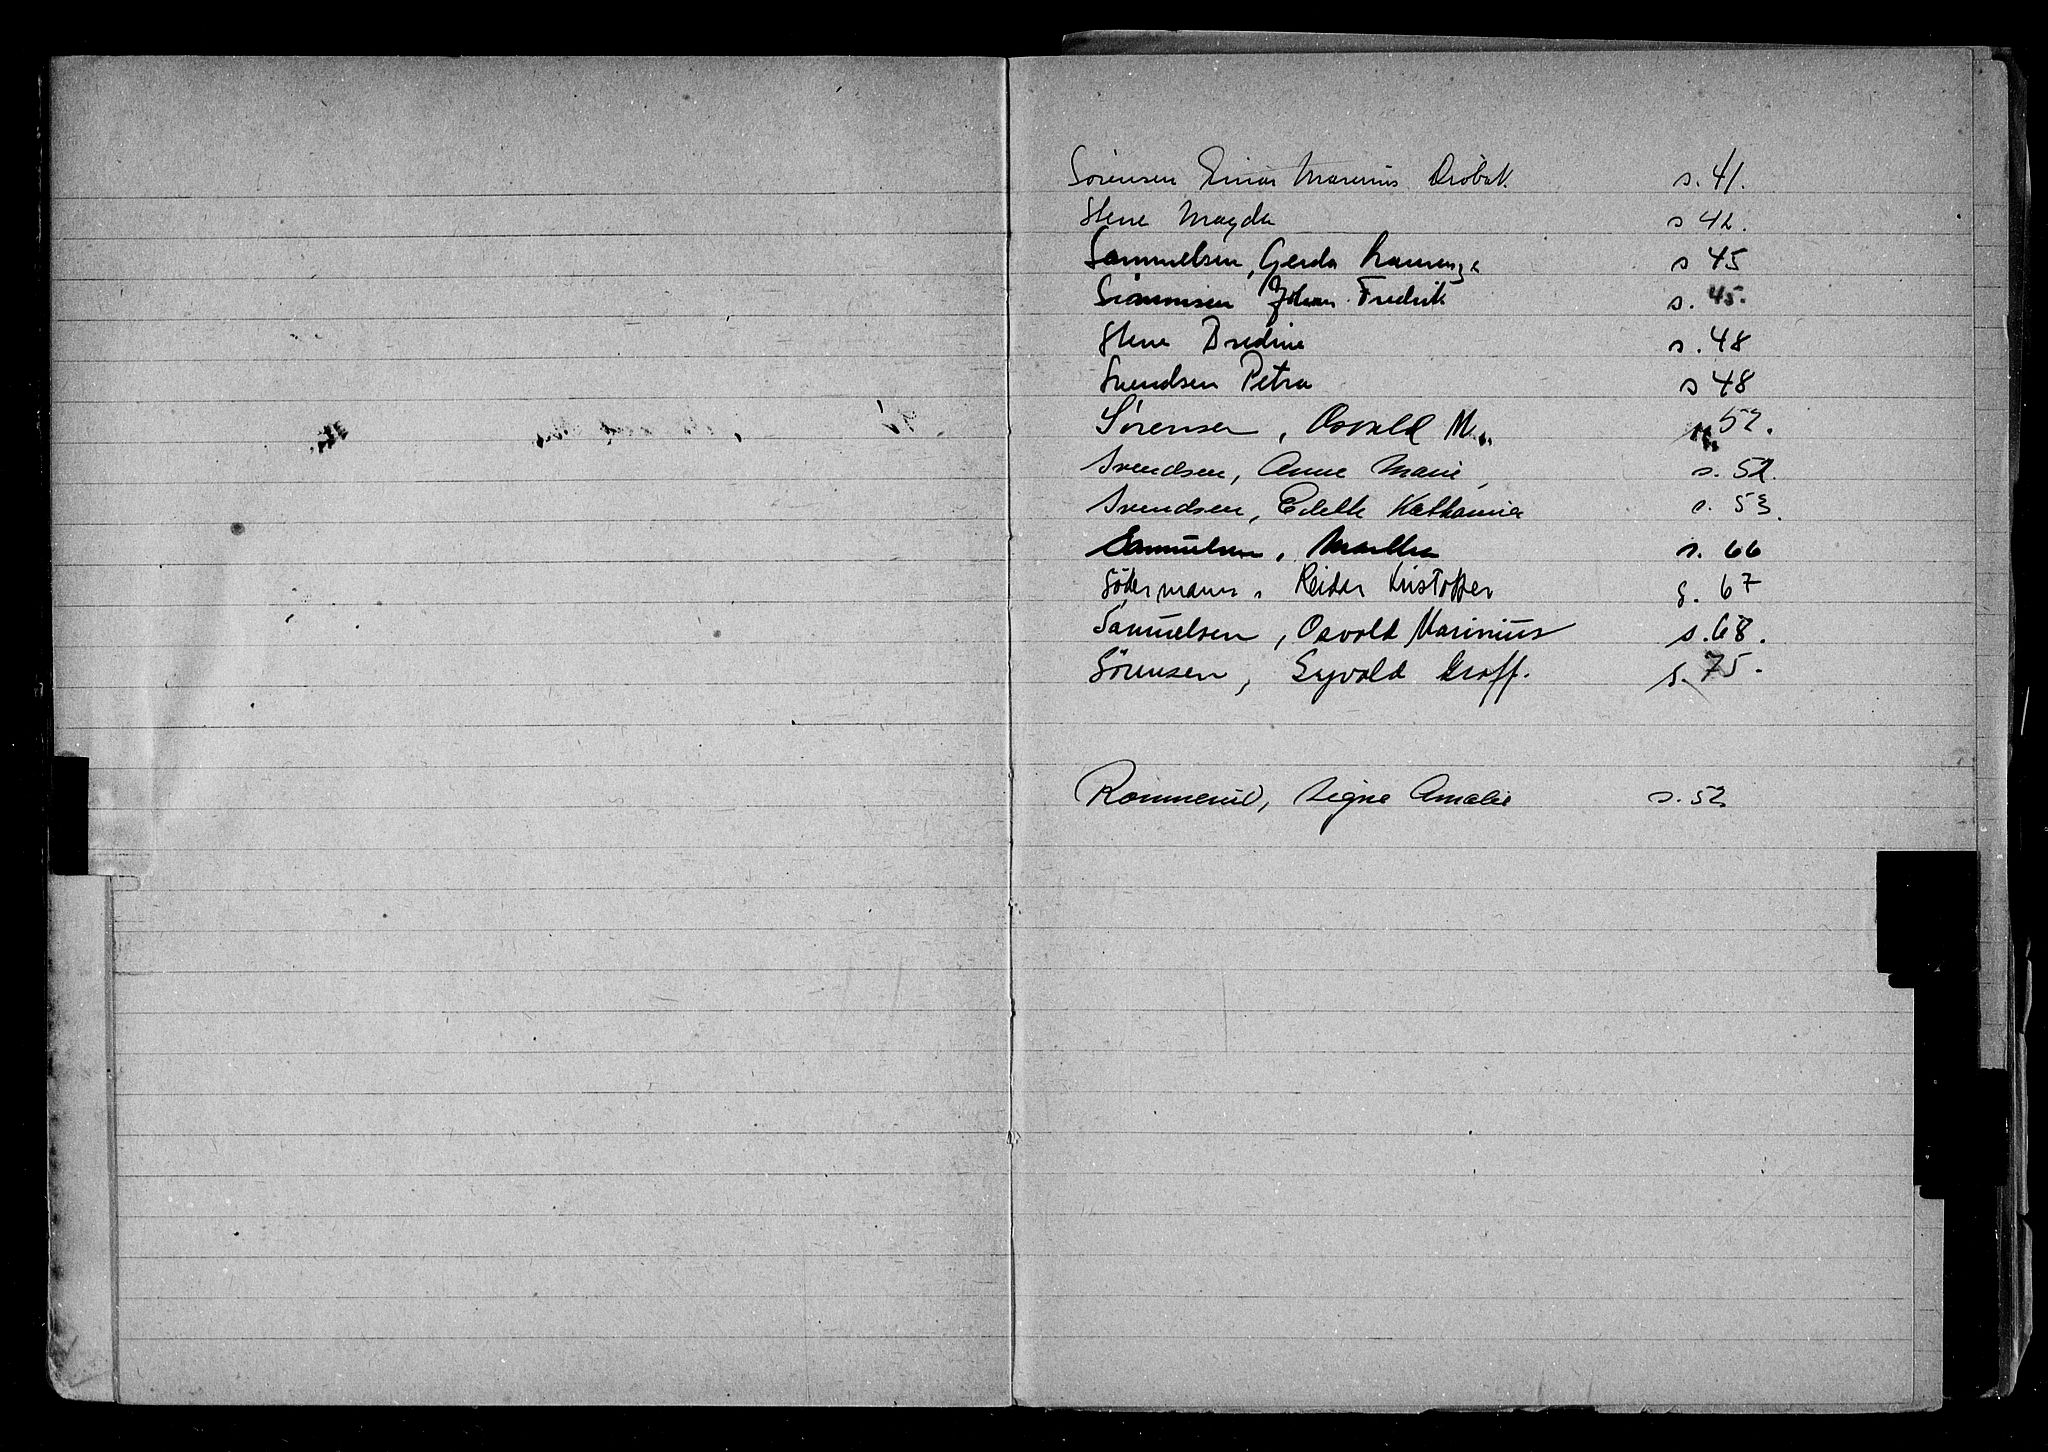 Sørensen Einar Marinius Drøbak s. 41.
Stene Magda s 42.
Sammuelsen, Gerda s 45
Johan Fredrik s. 45.
Stene s. 48
Svendsen Petra s 48
Sørensen, Osvald M. 52.
Svendsen, Anne Marie s. 52.
Svendsen, Edelle Katharina s. 53.
Samuelsen, Martha s. 66
Södermann, Reidar Kristoffer s. 67
Samuelsen, Osvald Marinius s. 68.
Sørensen, Syvald s. 75.
Rommerud, Signe Amalie s. 52